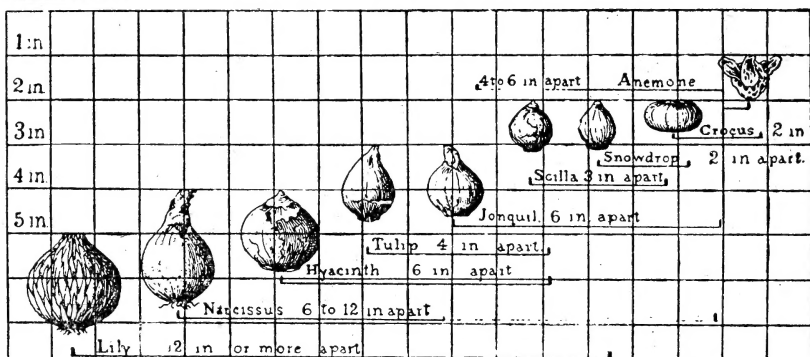 1 in
2 in
4 to 6 in apart Anemone
3 in
Crocus 2 in
Snowdrop 2 in apart.
4 in
Scilla 3 in apart
5 in
Jonquil. 6 in apart
Tulip 4 in apart.
Hyacinth 6 in apart
Narcissus 6 to 12 in apart
Lily 12 in or more apart